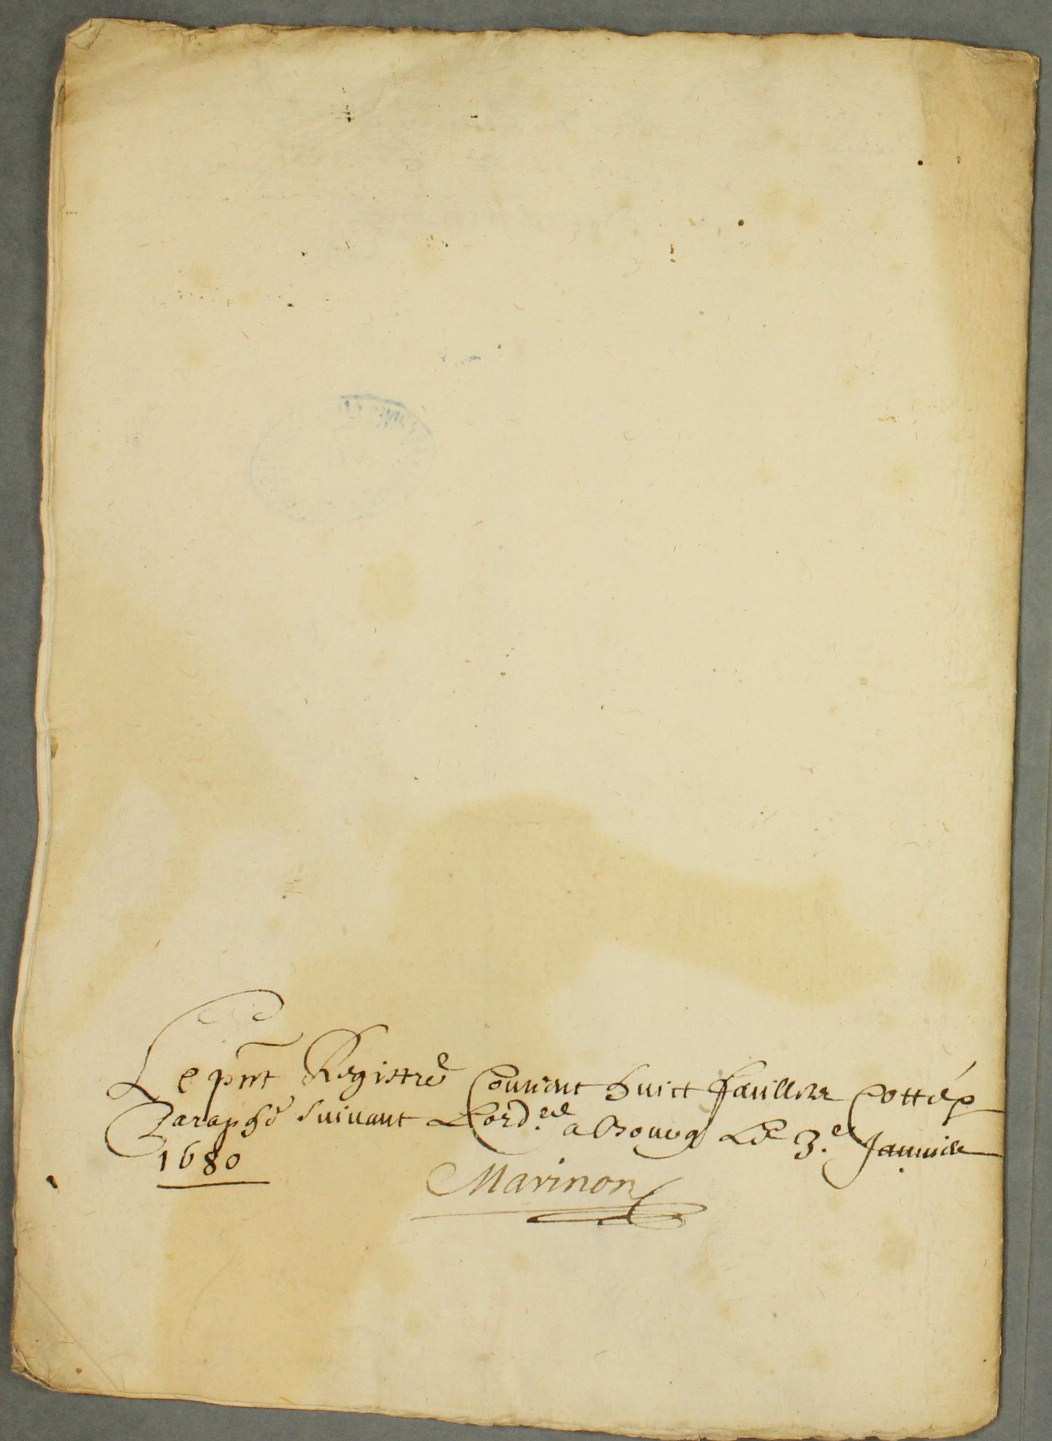 Le pnt Registre Contient huict feuillets Cottés
Paraphé suivant Lord.ce a Bourg Le 3.e Janvier
1680
Marinon